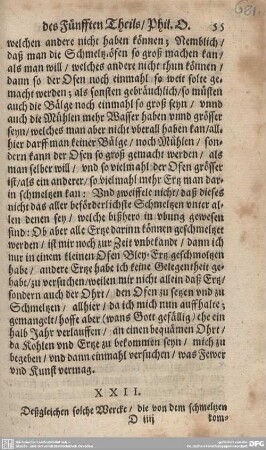 des Fünfften Theils/ Phil. O.
55
welchen andere nicht haben können; Nemblich/
daß man die Schmeltz-öfen so groß machen kan/
als man will/ welches andere nicht thun können/
dann so der Ofen noch einmahl so weit solte ge-
macht werden; als sonsten gebräuchlich/ so müsten
auch die Bälge noch einmahl so groß seyn/ vnnd
auch die Mühlen mehr Wasser haben vnnd grösser
seyn/ welches man aber nicht vberall haben kan/all-
hier darff man keiner Bälge/ noch Mühlen/ son-
dern kann der Ofen so groß gemacht werden/ als
man selber will/ und so vielmahl der Ofen grösser
ist/als ein anderer/ so vielmahl mehr Ertz man dar-
in schmeltzen kan: Vnd zweiffele nicht/ daß dieses
nicht das aller beförderlichste Schmeltzen unter al-
len denen sey/ welche bißhero in vbung gewesen
sind: Ob aber alle Ertze darinn können geschmeltzet
werden/ ist mir noch zur Zeit vnbekande/ dann ich
nur in einem kleinen Ofen Bley-Ertz geschmoltzen
habe/ andere Ertze habe ich keine Gelegentheit ge-
habt/zu versuchen/weilen mir nicht allein daß Ertz/
sondern auch der Ohrt/ den Ofen zu setzen vnd zu
Schmeltzen/ allhier/ da ich mich nun auffhalte;
gemangelt/hoffe aber/wans Gott gefällig/ ehe ein
halb Jahr verlauffen/ an einen bequämen Ohrt/
da Kohlen vnd Ertze zu bekommen seyn/ mich zu
begeben/ vnd dann einmahl versuchen/ was Fewer
vnd Kunst vermag.
XXII.
Deßgleichen solche Wercke/ die von dem schmeltzen
D iiij
kom-